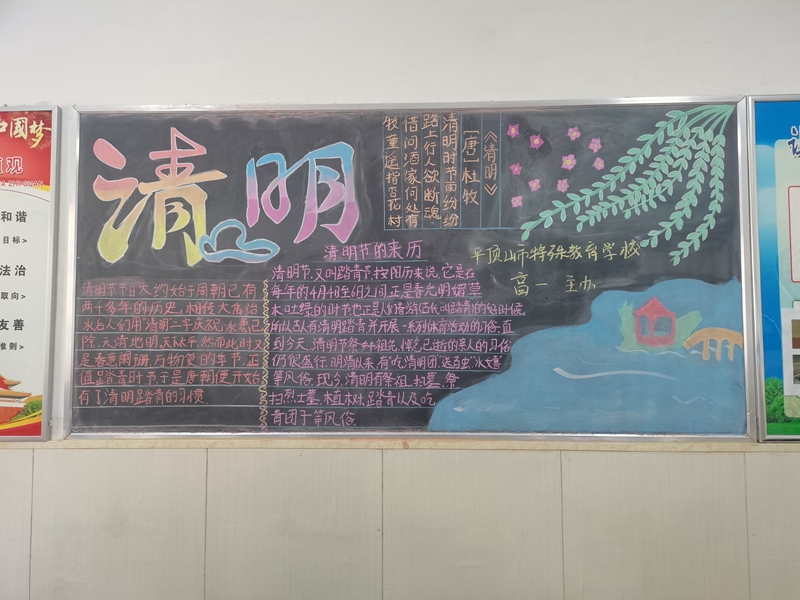 和國梦
观
和谐
目标>
法治
取向>
友善
准则>
清明
《清明》
[唐]杜牧
清明时节雨纷纷
路上行人欲断魂
借问酒家何处有
牧童遥指杏花村
平顶山市特殊教育学校
高一 主办
清明节的来历
清明节节日大约始于周朝已有
两千多年的历史,相传大禹治
水后人们用清明二字庆祝水患已
除,天清地明,天下太平,然而此时又
是春意阑珊万物复的季节,正
值踏青时节于是唐朝便开始
有了清明踏青的习惯
清明节,又叫踏青节,按阳历来说,它是在
每年的4月4日至6日之间正是春光明媚草
木吐绿的时节也正是人们春游(古代叫踏青)的好时候,
所以古人有清明踏青并开展一系列体育活动的习俗.直
到今天,清明节祭拜祖先,悼念已逝的亲人的习俗
仍很盛行.明清以来,有"吃清明团"
等风俗,现今,清明有祭祖,扫墓,祭
扫烈士墓,植树,踏青以及吃
青团子等风俗.